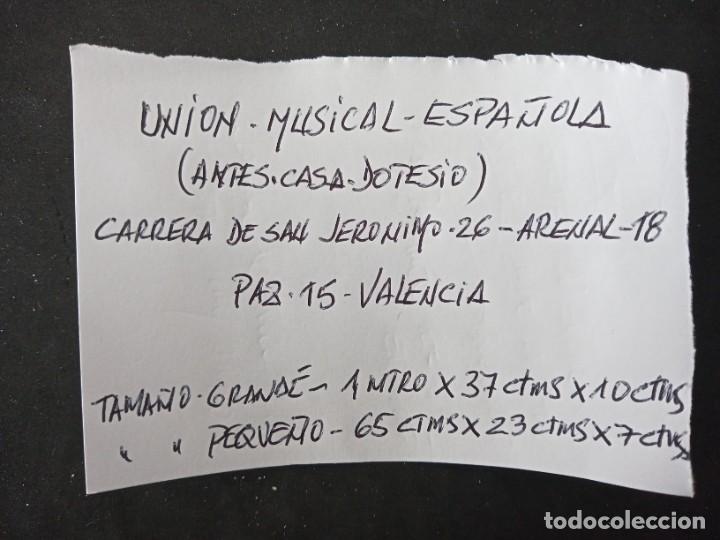 UNION - MUSICAL - ESPAÑOLA
(ANTES - CASA - DOTESIO)
CARRERA DE SAN JERONIMO - 26 - ARENAL - 18
PAZ - 15 - VALENCIA
TAMAÑO - GRANDE - 1 MTRO X 37 CTMS X 10 CTMS
" " PEQUEÑO - 65 CTMS X 23 CTMS X 7 CTMS
todocoleccion